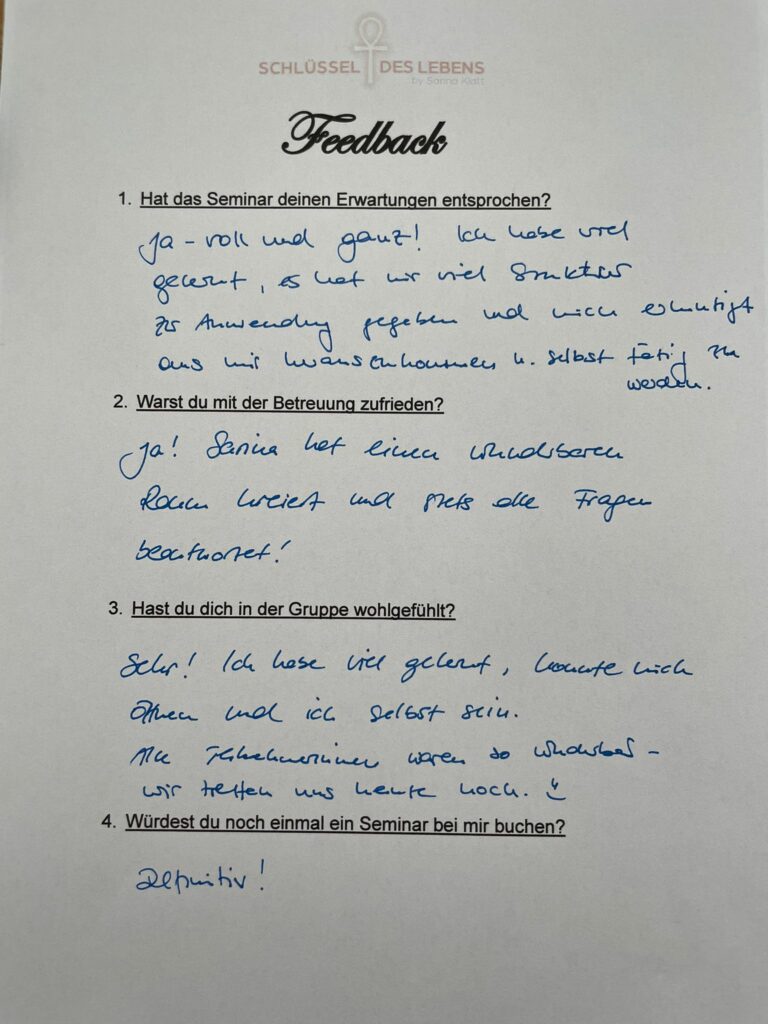 SCHLÜSSEL DES LEBENS
by Sarina Klatt
Feedback
1. Hat das Seminar deinen Erwartungen entsprochen?
Ja – voll und ganz! Ich habe viel
gelernt, es hat mir viel Struktur
zur Anwendung gegeben und mich ermutigt
aus mir herauszukommen u. selbst tätig zu
werden.
2. Warst du mit der Betreuung zufrieden?
Ja! Sarina hat einen wunderbaren
Raum kreiert und stets alle Fragen
beantwortet!
3. Hast du dich in der Gruppe wohlgefühlt?
Sehr! Ich habe viel gelernt, konnte mich
öffnen und ich selbst sein.
Alle Teilnehmerinnen waren so wunderbar –
wir treffen uns heute noch.
4. Würdest du noch einmal ein Seminar bei mir buchen?
Definitiv!